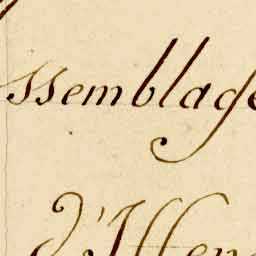 ssemblage
d'Issen